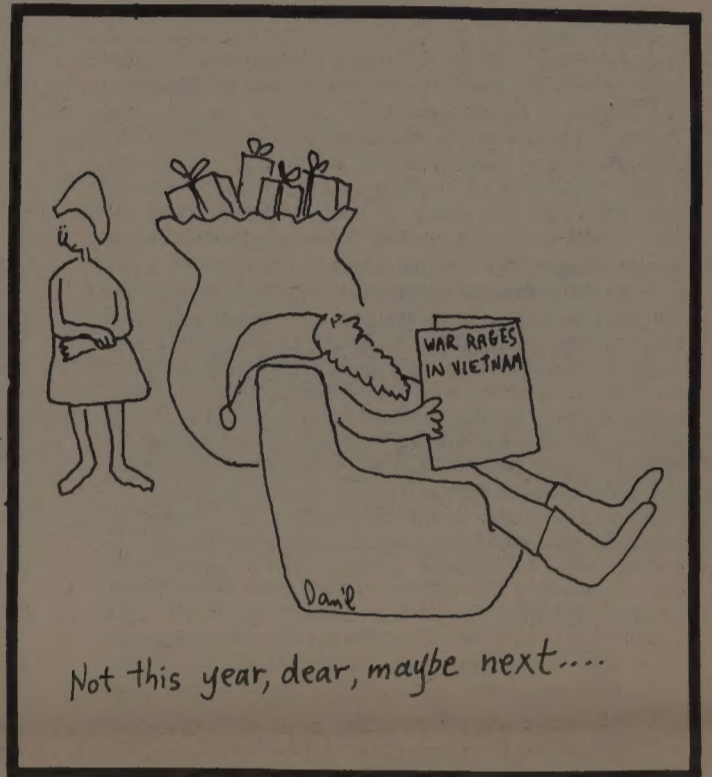 WAR RAGES
IN VIETNAM
Dan'l
Not this year, dear, maybe next....